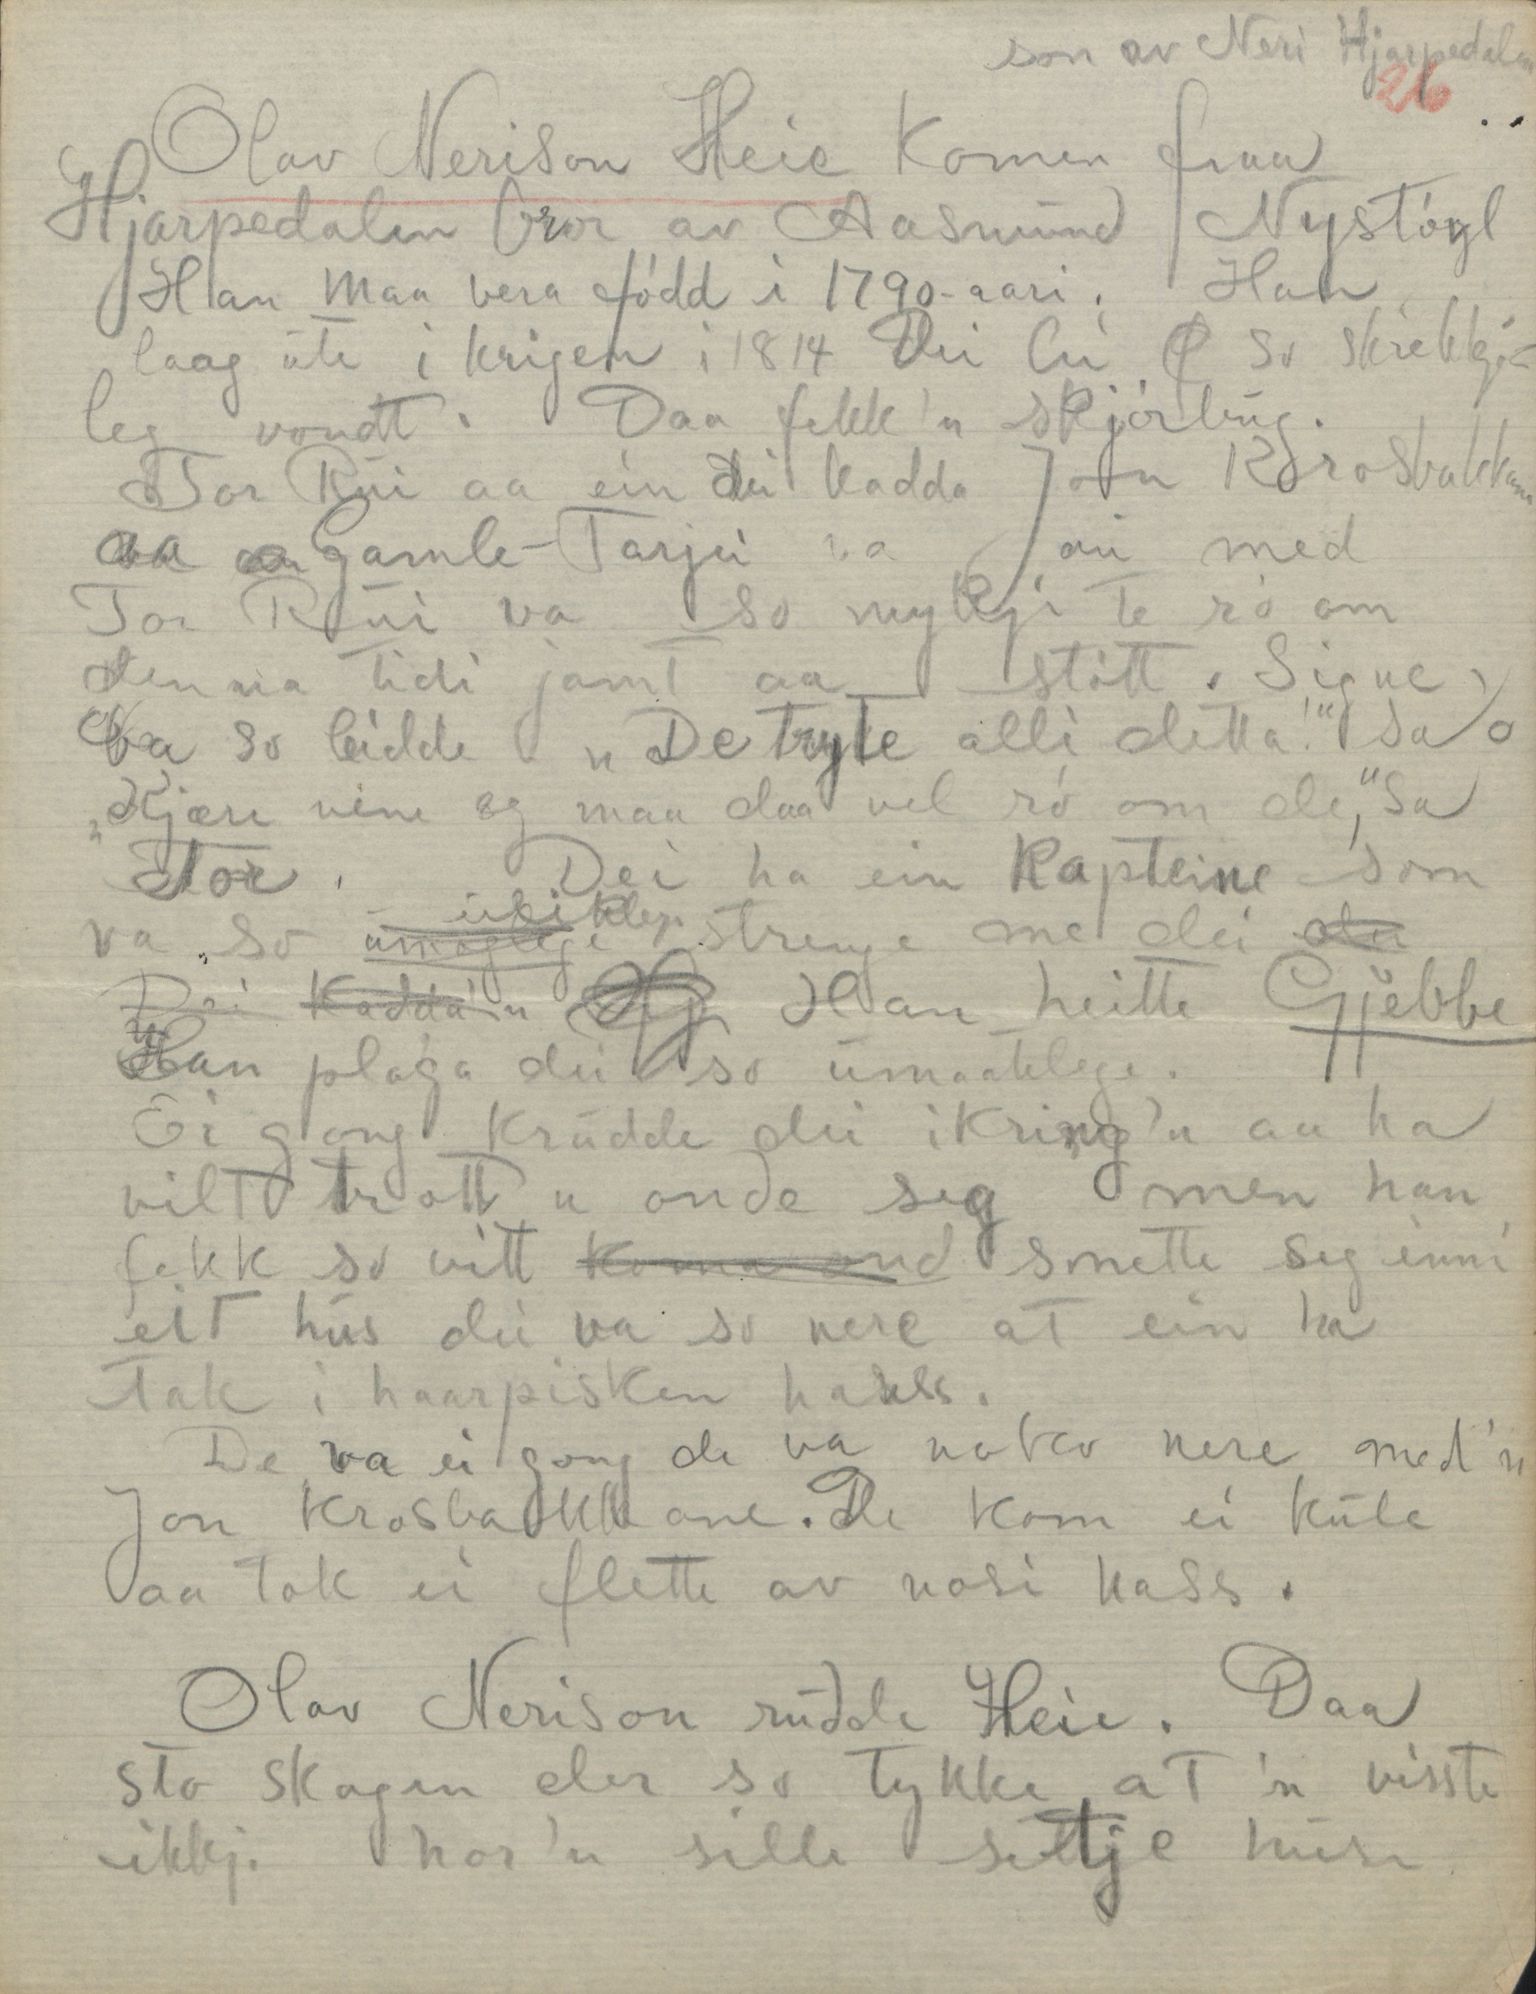 son av Neri Hjarpedalen
26
Olav Nerison Heie Komen fraa
Hjarpedalen bror av Aasmund Nystógl
Han maa vera fódd i 1790-aari. Han
laag ute i krigen i 1814 Dei lei so skrekkje-
leg vondt. Daa fekk'n skjórbug.
Tor Rui aa ein dei kadda Jon Krosbakkane
va aa Gamle-Tarjei va au med
Tor Rui va so mykji te ró om
denna tidi jamt aa stótt. Signe
va so leidde "De tryte alli detta!" Sa o
"Kjære vene eg maa daa vel ró om de," Sa
Tor. Dei ha ein Kapteine som
va so umøglege strenge me dei
Dei Kadda'n Han heitte Gjebbe
Han plaga dei so umaatelege.
Ei gong krudde dei ikring'n aa ha
vilt trott'n onde seg men han
fekk so vitt koma und smette seg inni
eit hus dei va so nere at ein ha
tak i haarpisken hass.
De va ei gong de va noko nere med'n
Jon Krosbakkane. De kom ei kule
aa tok ei flette av nosi hass.
Olav Nerison rudde Heie. Daa
sto skogen der so tykke at 'n visste
ikkj. hor'n sille settje husi